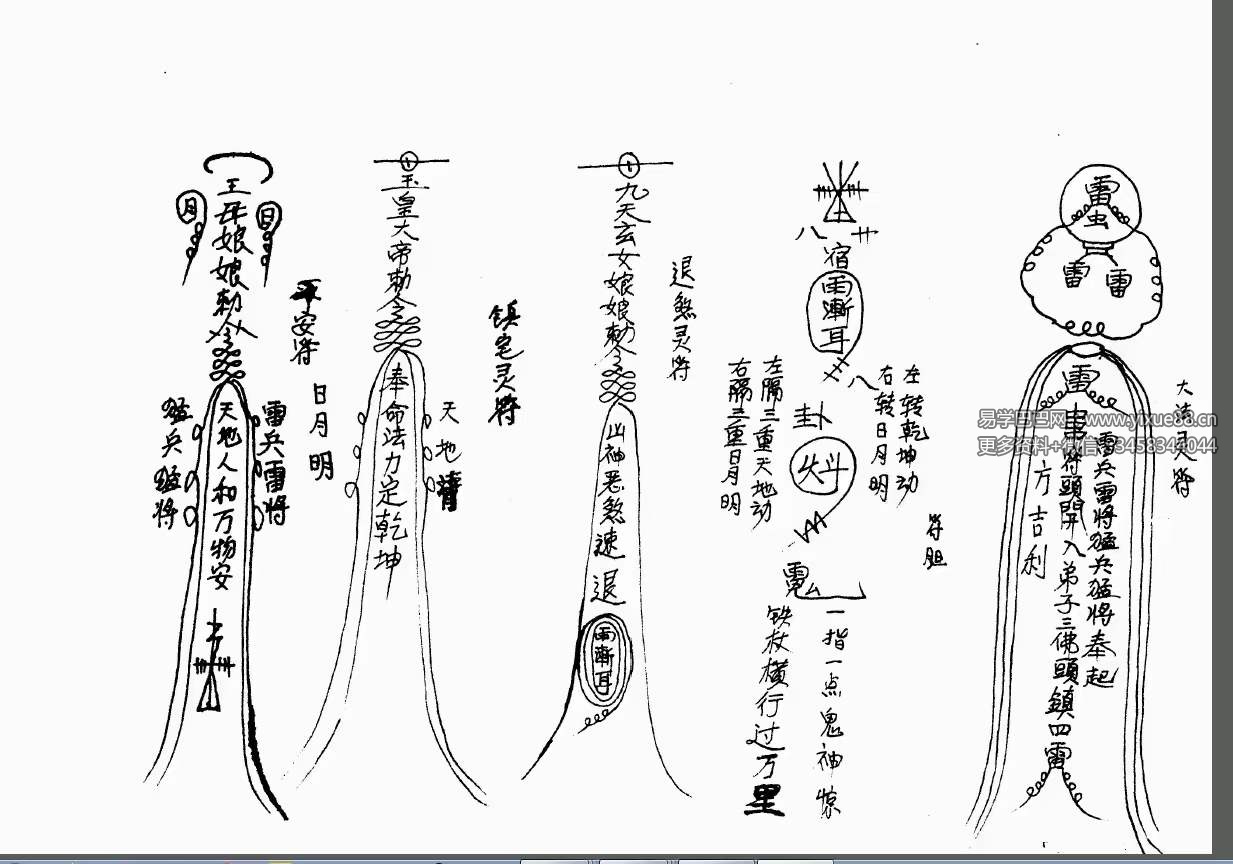 月
日
王母娘娘勅令
平安符
猛兵猛将
天地人和万物安
雷兵雷将
日月明
玉皇大帝勅令
奉命法力定乾坤
天地清
镇宅灵符
九天玄女娘娘勅令
退煞灵符
凶神恶煞速退
雨漸耳
八
廾
宿
雨漸耳
八
右隔三重日月明
左隔三重天地动
卦
右转日月明
左转乾坤动
符胆
铁杖横行过万里
一指一点鬼神惊
雷
虫
雷
雷
雷
雷兵雷将猛兵猛将奉起
符頭開入弟子三佛頭鎮四雷
方吉利
大法灵符
易学巴巴网：www.yixue88.cn